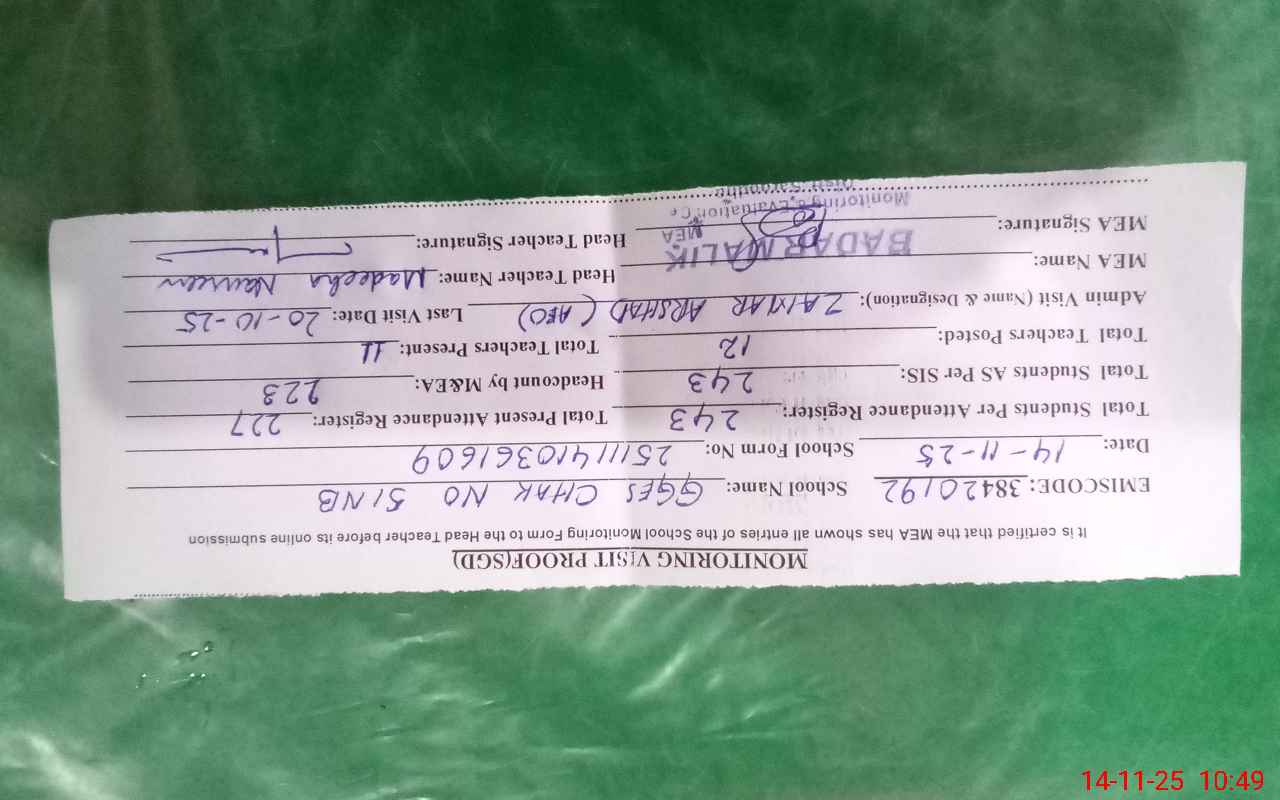 MONITORING VISIT PROOF(SGD)
It is certified that the MEA has shown all entries of the School Monitoring Form to the Head Teacher before its online submission
EMISCODE: 38420192 School Name: GGES CHAK NO 51NB
Date: 14-11-25 School Form No: 25111410361609
Total Students Per Attendance Register: 243 Total Present Attendant Register: 227
Total Students AS Per SIS: 243 Headcount by M&EA: 223
Total Teachers Posted: 12 Total Teachers Present: 11
Admin Visit (Name & Designation): ARSHAD (AEO) Last Visit Date: 20-10-25
MEA Name: BADAR MALIK Head Teacher Name: Madeeha Nausreen
MEA Signature: MEA Head Teacher Signature:
Monitoring & Evaluation Ce
14-11-25 10:49